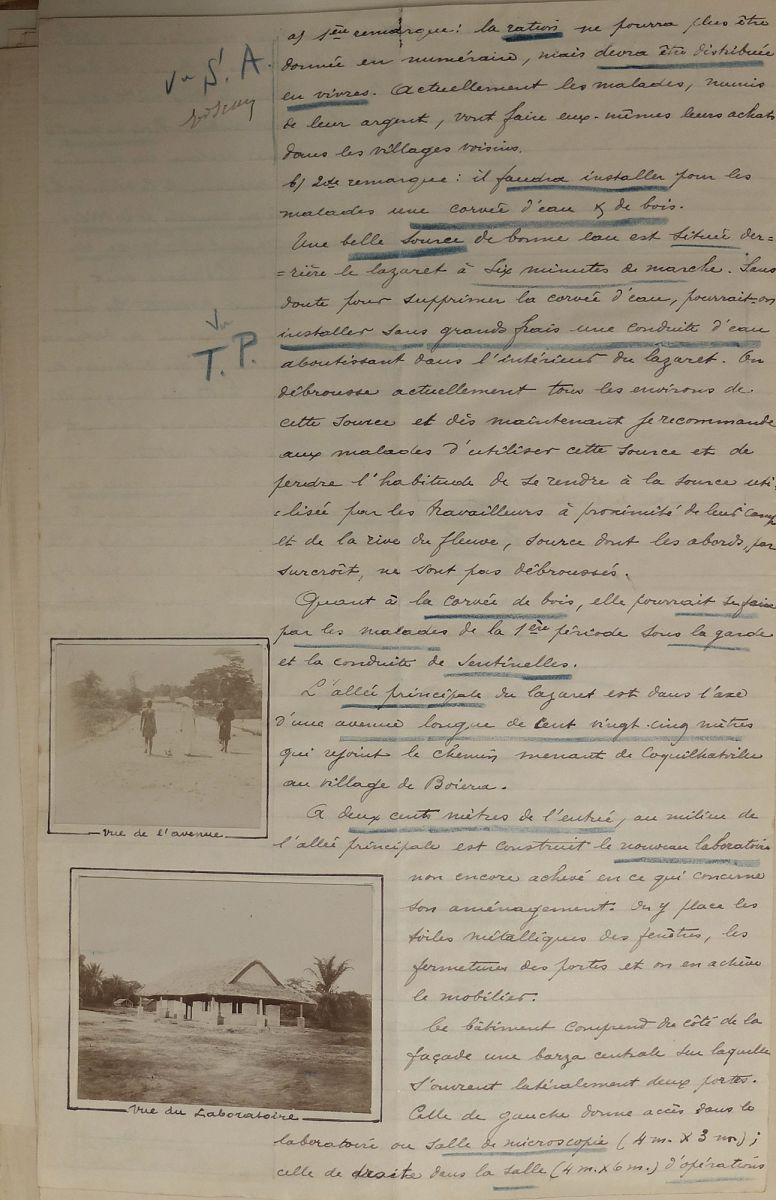 a) 1ère remarque: la ration ne pourra plus être
donnée en numéraire, mais devra être distribuée
en vivres. Actuellement les malades, munis
de leur argent, vont faire eux-mêmes leurs achats
dans les villages voisins.
b) 2de remarque: il faudra installer pour les
malades une corvée d'eau & de bois.
Une belle source de bonne eau est située der=
=rière le lazaret à six minutes de marche. Sans
doute pour supprimer la corvée d'eau, pourrait-on
installer sans grands frais une conduite d'eau
aboutissant dans l'intérieur du lazaret. On
débrousse actuellement tous les environs de
cette source et dès maintenant je recommande
aux malades d'utiliser cette source et de
perdre l'habitude de se rendre à la source uti-
-lisée par les travailleurs à proximité de leur camp
et de la rive du fleuve, source dont les abords, par
surcroît, ne sont pas débroussés.
Quant à la corvée de bois, elle pourrait se faire
par les malades de la 1ère période sous la garde
et la conduite de sentinelles.
L'allée principale du lazaret est dans l'axe
d'une avenue longue de cent vingt-cinq mètres
qui rejoint le chemin menant de Coquilhatville
au village de Boiera.
A deux cents mètres de l'entrée, au milieu de
l'allée principale est construit le nouveau laboratoire
non encore achevé en ce qui concerne
son aménagement. On y place les
toiles métalliques des fenêtres, les
fermetures des portes et on en achève
le mobilier.
Ce bâtiment comprend du côté de la
façade une barza centrale sur laquelle
s'ouvrent latéralement deux portes.
Celle de gauche donne accès dans le
laboratoire ou salle de microscopie (4 m. x 3 m.);
celle de droite dans la salle (4 m. x 6 m.) d'opérations
Vu S'. A.
Vu
T. P.
Vue de l'avenue
Vue du Laboratoire